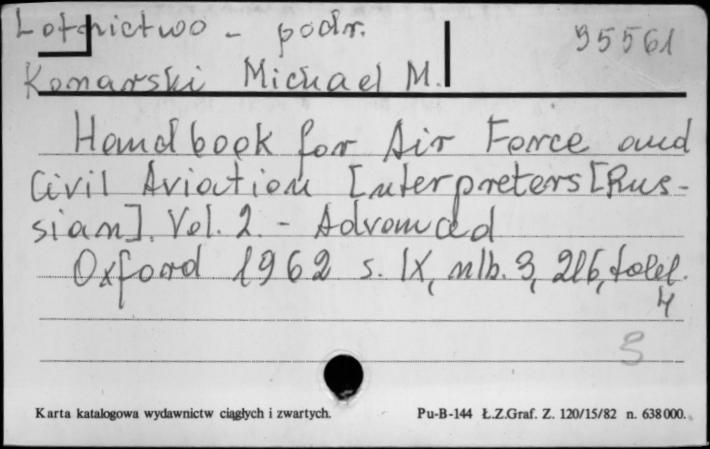 Lotnictwo - podr.
95561
Konarski Michael M.
Handbook for Air Force and
Civil Aviation Interpreters [Rus-
sian]. Vol. 2. - Advanced
Oxford 1962 s. IX, nlb. 3, 216, tabl.
4
3
Karta katalogowa wydawnictw ciągłych i zwartych.
Pu-B-144 Ł.Z.Graf. Z. 120/15/82 n. 638 000.